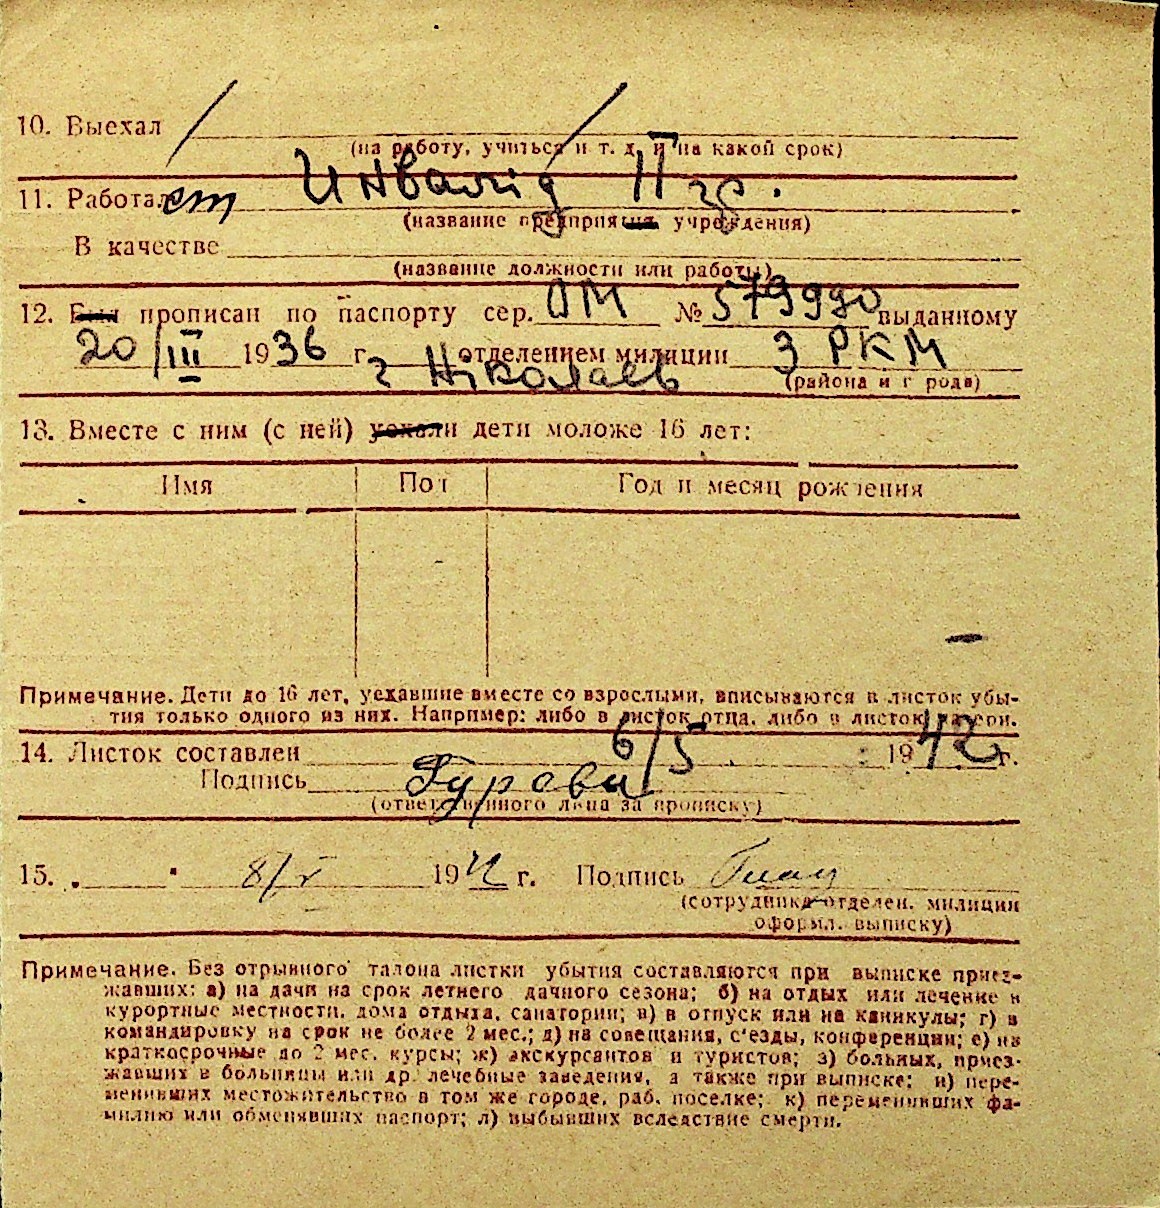 10. Выехал
(на работу, учиться и т. д. и на какой срок)
11. Работает Инвалид II гр.
(название предприятия учреждения)
В качестве
(название должности или работы)
12. Был прописан по паспорту сер. ОМ № 579990 выданному
20/III 1936 г. отделением милиции 3 РКМ
г Николаев (района и города)
13. Вместе с ним (с ней) уехали дети моложе 16 лет:
Имя Пол Год и месяц рождения
Примечание. Дети до 16 лет, уехавшие вместе со взрослыми, вписываются в листок убы-
тия только одного из них. Например: либо в листок отца, либо в листок матери.
14. Листок составлен 6/5 1942 г.
Подпись Гурова
(ответственного лица за прописку)
15. 8/V 1942 г. Подпись
(сотрудника отделен. милиции
оформл. выписку)
Примечание. Без отрывного талона листки убытия составляются при выписке приез-
жавших: а) на дачи на срок летнего дачного сезона; б) на отдых или лечение в
курортные местности, дома отдыха, санатории; в) в отпуск или на каникулы; г) в
командировку на срок не более 2 мес.; д) на совещания, с'езды, конференции; е) на
краткосрочные до 2 мес. курсы; ж) экскурсантов и туристов; з) больных, приез-
жавших в больницы или др. лечебные заведения, а также при выписке: и) пере-
менивших местожительство в том же городе, раб. поселке; к) переменивших фа-
милию или обменявших паспорт; л) выбывших вследствие смерти.